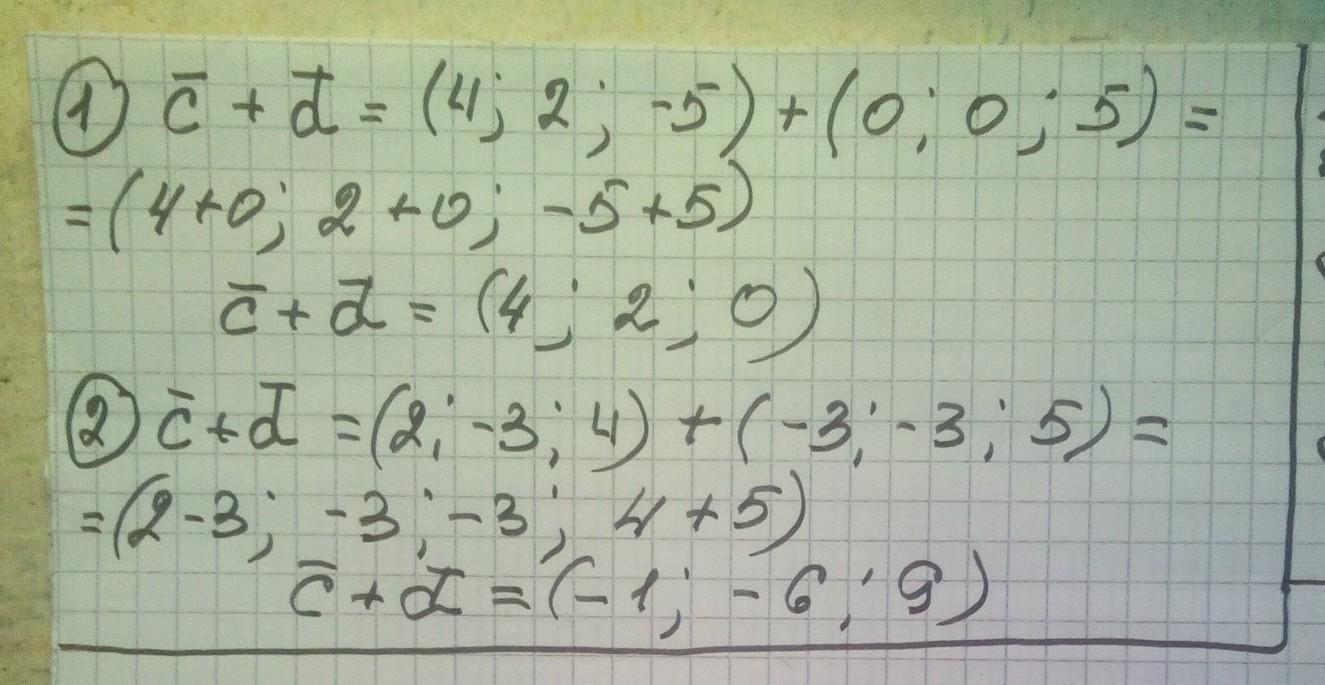 ① c̄ + d̄ = (4; 2; -5) + (0; 0; 5) =
= (4+0; 2+0; -5+5)
c̄ + d̄ = (4; 2; 0)
② c̄ + d̄ = (2; -3; 4) + (-3; -3; 5) =
= (2-3; -3; -3; 4+5)
c̄ + d̄ = (-1; -6; 9)